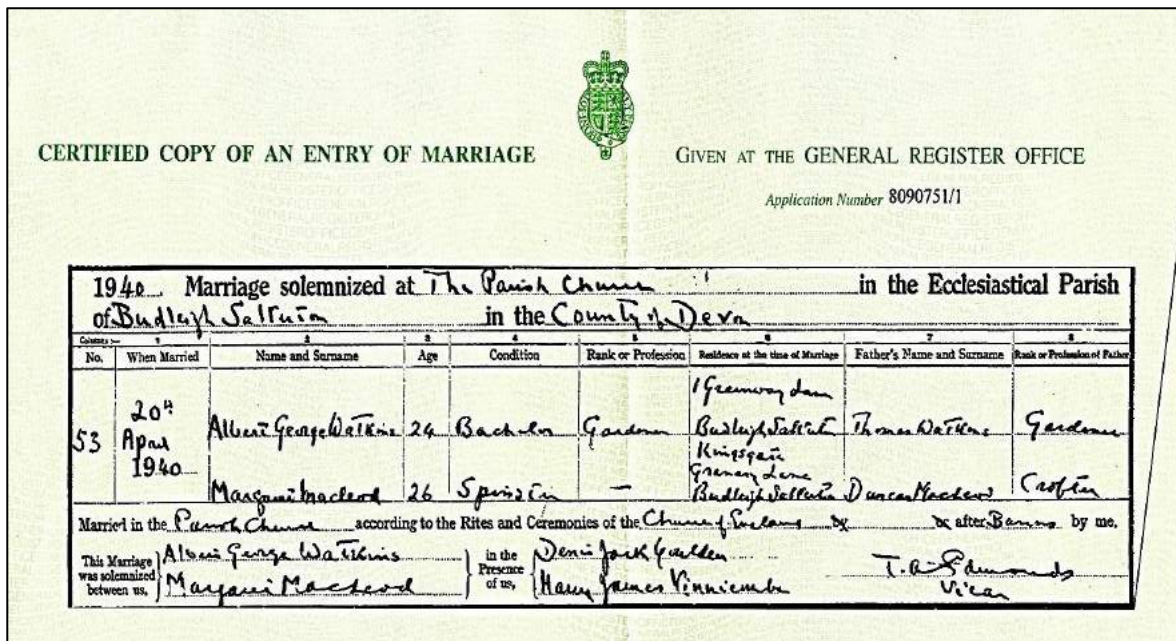 CERTIFIED COPY OF AN ENTRY OF MARRIAGE
GIVEN AT THE GENERAL REGISTER OFFICE
Application Number 8090751/1
1940 Marriage solemnized at The Parish Church in the Ecclesiastical Parish
of Budleigh Salterton in the County of Devon
Columns :— 1 2 3 4 5 6 7 8
No. When Married Name and Surname Age Condition Rank or Profession Residence at the time of Marriage Father's Name and Surname Rank or Profession of Father
53 20th April 1940 Albert George Watkins 24 Bachelor Gardener 1 Greenway Lane Budleigh Salterton Thomas Watkins Gardener
Margaret Macleod 26 Spinster — Kingsgate Granary Lane Budleigh Salterton Duncan Macleod Crofter
Married in the Parish Church according to the Rites and Ceremonies of the Church of England by or after Banns by me,
This Marriage was solemnized between us, Albert George Watkins Margaret Macleod in the Presence of us, Denis Jack Harry James Vinnicombe T. A. Edmonds Vicar